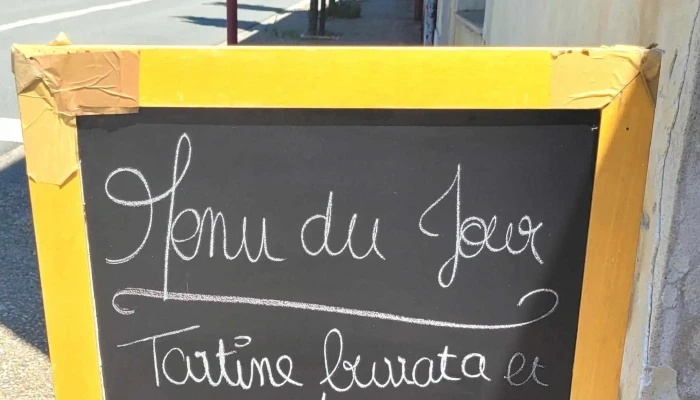 Menu du Jour
Tartine burrata et